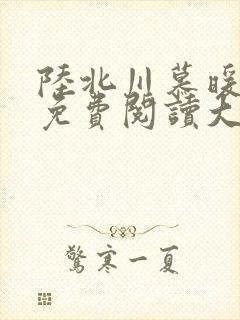 陸北川慕暖
免費閱讀大
驚寒一夏